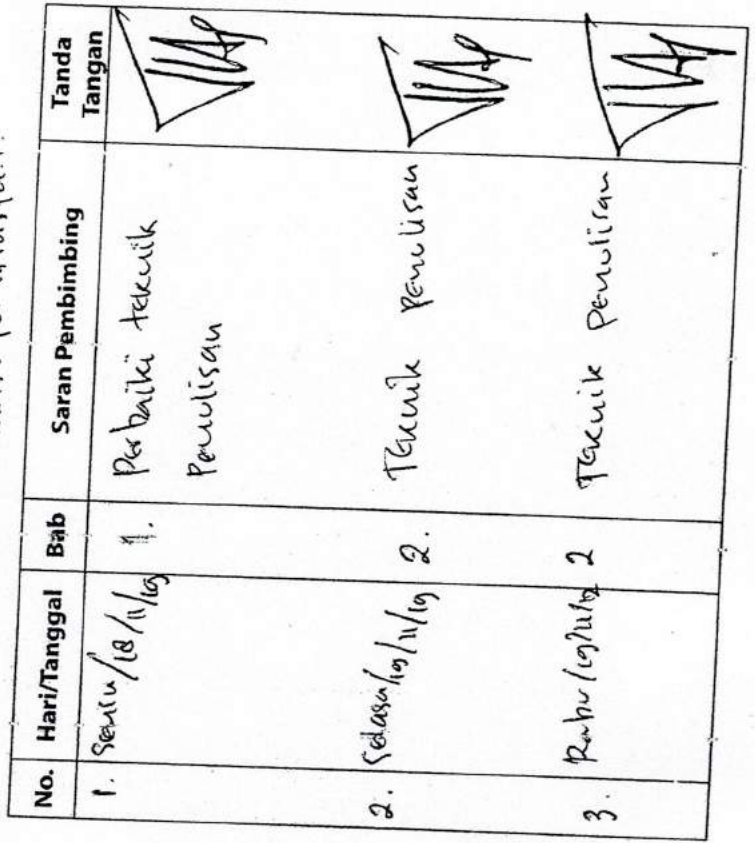 No. Hari/Tanggal Bab Saran Pembimbing Tanda Tangan
1. Senin/18/11/19 1. Perbaiki teknik
Penulisan
2. Selasa/19/11/19 2. Teknik penulisan
3. Rabu 2 Teknik penulisan